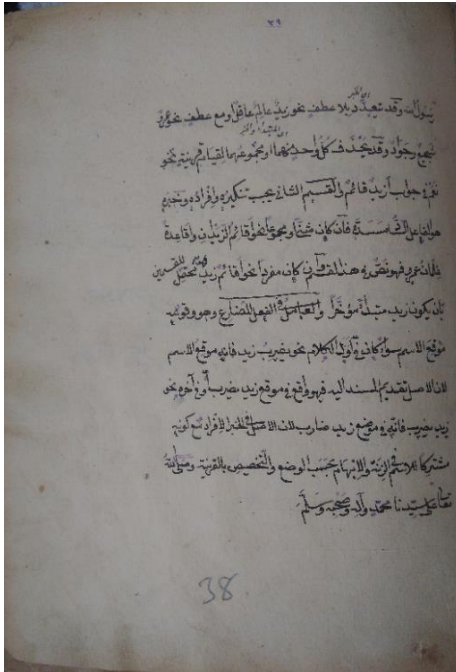 ٣٩
رسول الله وقد تعدد بلا عطف نحو زيد عالم عاقل او مع عطف نحو عمرو
شجيع وجواد وقد يحذف كل واحد منهما او مجموعهما لقيام قرينة نحو
نعم في جواب ازيد قائم والقسم الثاني يجب تنكيره وافراده وخبره
هو الفاعل الساد مسده فان كان مثنى او مجموعا نحو اقائم الزيدان واقاعدة
غلمان عمرو فهو نص في هذا القسم وان كان مفردا نحو اقائم زيد فهو محتمل للقسمين
بان يكون زيد مبتدأ مؤخرا والعامل في الفعل المضارع وهو وقوعه
موقع الاسم سواء كان في اول الكلام نحو يضرب زيد فانه موقع الاسم
لان الاصل تقديم المسند اليه فهو واقع في موقع زيد يضرب او في آخره نحو
زيد يضرب فانه في موضع زيد ضارب لان الاصل في الخبر الافراد مع كونه
مشتركا للاسم في الزنة والابهام حسب الوضع والتخصيص بالقرينة وصلى الله
تعالى على سيدنا محمد وآله وصحبه وسلم
38